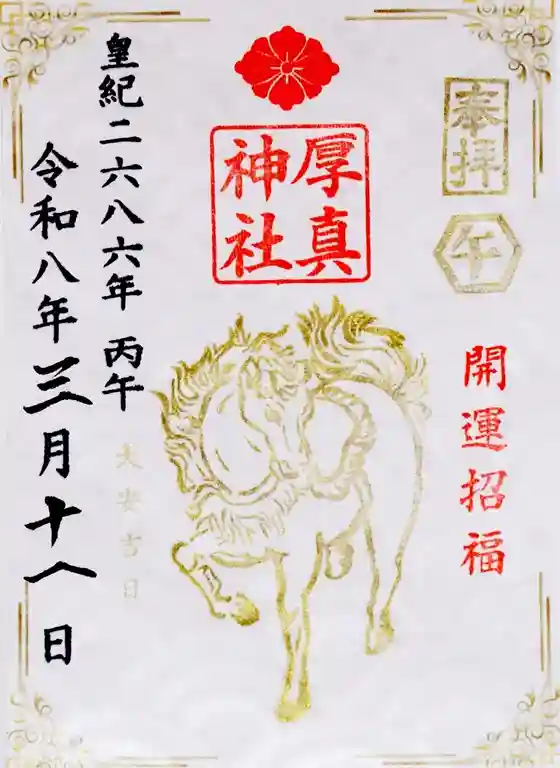 奉拝
午
開運招福
厚真
神社
皇紀二六八六年 丙午
大安吉日
令和八年三月十八日